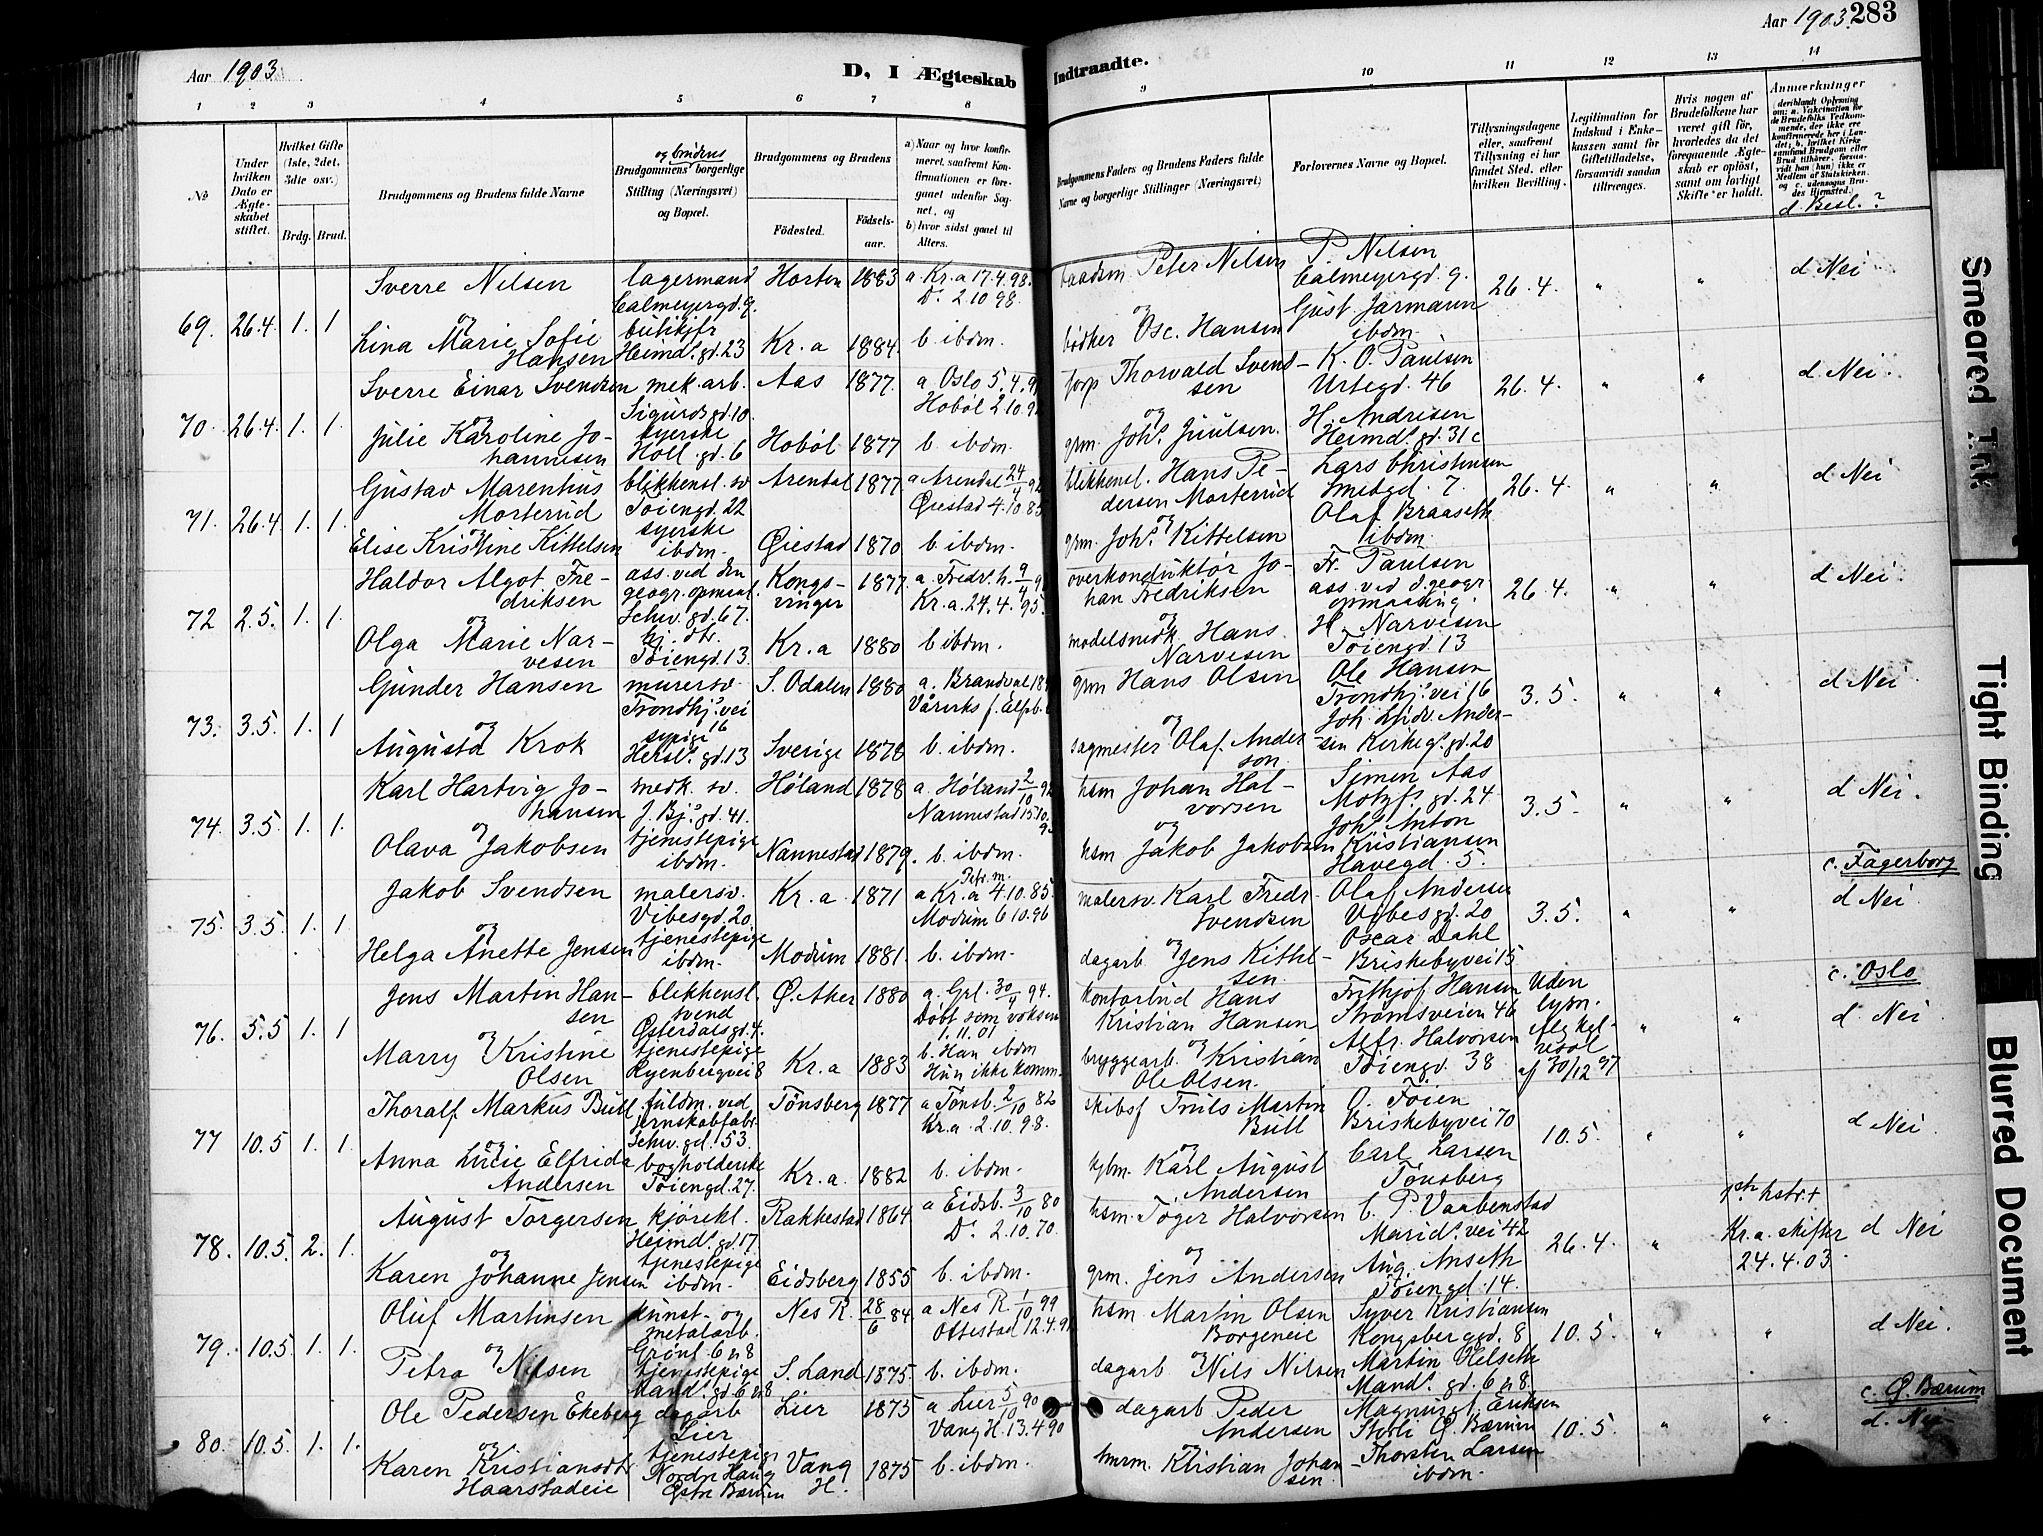 Aar 1903
D, I Ægteskab
Indtraadte.
Aar 1903
283
1 2 3 4 5 6 7 8 9 10 11 12 13 14
No
Under hvilken Dato er Ægteskabet stiftet.
Hvilket Gifte (1ste, 2det, 3die osv.)
Brdg. Brud.
Brudgommens og Brudens fulde Navne
og brudens
Brudgommens borgerlige Stilling (Næringsvei) og Bopæl.
Brudgommens og Brudens
Födested.
Födselsaar.
a) Naar og hvor konfirmeret, saafremt Konfirmationen er foregaaet udenfor Sognet, og
b) hvor sidst gaaet til Alters.
Brudgommens Faders og Brudens Faders fulde Navne og borgerlige Stillinger (Næringsvei)
Forlovernes Navne og Bopæl.
Tillysningsdagene eller, saafremt Tillysning ei har fundet Sted, efter hvilken Bevilling.
Legitimation for Indskud i Enkekassen samt for Giftetilladelse, forsaavidt saadan tiltrænges.
Hvis nogen af Brudefolkene har været gift för, hvorledes da det foregaaende Ægteskab er oplöst, samt om lovligt Skifte er holdt.
Anmærkninger
d. Besl.?
69. 26.4. 1. 1
Sverre Nilsen
og
Lina Marie Sofie
Hansen
lagermand
Calmeyergd. 9.
butikjfr
Heimd. gd. 23
Horten 1883
Kr.a 1884.
a. Kr.a 17.4.98.
Do. 2.10 98.
b. ibdm.
baadsm Peter Nilsen
og
bødker Osc. Hansen
P. Nilsen
Calmeyergd. 9.
Gust Jarmann
ibdm.
26.4.
d Nei
70. 26.4. 1. 1.
Sverre Einar Svendsen
og
Julie Karoline Jo-
hannesen
mek. arb.
Sigurdsgd. 10.
syerske
Holl. gd. 6
Aas 1877.
Hobøl 1877
a Oslo 5.4.9
Hobøl 2.10.9
b. ibdm.
Thorvald Svend-
sen
og
grm. Johs. Juulsen.
K. O. Paulsen
Urtegd. 46
H. Andrisen
Heimds. gd. 31c
26.4.
d. Nei
71. 26.4. 1. 1.
Gustav Marentius
Morterud
og
Elise Kristine Kittelsen
blikkensl. sv
Töiengd. 22
syerske
ibdm.
Arendal 1877
Øiestad 1870
a Arendal 24/4 9
Øiestad 4.10.85
b. ibdm.
blikkensl. Hans Pe-
dersen Morterud
og
grm. Johs. Kittelsen
Lars Christensen
Smedgd. 7.
Olaf Braaseth
ibdm.
26.4.
d Nei
72 2.5. 1. 1.
Haldor Algot Fre-
driksen
og
Olga Marie Nar-
vesen
ass. ved den
geogr. opmaal.
Schw. gd. 67.
hj. dt.
Töiengd. 13.
Kongs-
vinger 1877.
Kr.a 1880
a. Fredr.h. 9/4 9
Kr.a. 24.4.95.
b ibdm.
overkonduktör Jo-
han Fredriksen
og
modelsnedk. Hans
Narvesen
Fr. Paulsen
ass. ved d. geogr.
opmaaling.
H. Narvesen
Töiengd. 13
26.4.
d Nei
73. 3.5. 1. 1
Gunder Hansen
og
Augusta Krok
murersv.
Trondhj. vei
16
sypige
Hersl. gd. 13
S. Odalen 1880
Sverige 1878
a. Brandval 18
b. ibdm.
grm Hans Olsen
og
sagmester Olaf Ander
son
Ole Hansen
Trondhj. vei 16
Joh. Ludv. Ander-
sen Kirkeg. gd. 20
3.5.
d Nei
74. 3.5. 1. 1.
Karl Hartvig Jo-
hansen
og
Olava Jakobsen
snedk. sv.
J. Bj. gd. 41.
tjenestepige
ibdm.
Høland 1878
Nannestad 1879.
a. Høland 2/10 9
Nannestad 15.10.
b. ibdm.
hsm Johan Hal-
vorsen
og
hsm Jakob Jakobsen
Simen Aas
Motzf. gd. 24
Johs Anton
Kristiansen
Havegd. 5.
3.5.
d Nei.
75. 3.5. 1. 1
Jakob Svendsen
og
Helga Anette Jensen
malersv.
Vibesgd. 20
tjenestepige
ibdm.
Kr.a 1871
Modum 1881.
a Kr.a 4.10.85.
Modum 6 10.96
b. ibdm.
malersv. Karl Fredr.
Svendsen
og
dagarb Jens Kittel-
sen.
Olaf Andersen
Vibesgd. 20
Oscar Dahl
Briskebyvei 15
3.5.
c. Fagerborg
d Nei.
76. 5.5 1. 1
Jens Martin Han-
sen
og
Marry Kristine
Olsen
blikkensl.
svend
Østerdalsgd. 4.
tjenestepige
Ryenbergvei 8
Ø. Aker 1880
Kr.a 1883
a. Grl. 30/4 94.
Døbt som voksen
1.11.01
b. Han ibdm
Hun ikke komm.
kontorbud Hans
Kristian Hansen
og
bryggearb. Kristian
Ole Olsen.
Frithjof Hansen
Strömsveien 46
Alfr. Halvorsen
Töiengd. 38
Uden
lysn.
af 30/12 97
c. Oslo
d Nei
77 10.5 1. 1.
Thoralf Markus Bull
og
Anna Lucie Elfrida
Andersen
fuldm. ved
jernskabfabr.
Schw. gd. 53.
bogholderske
Töiengd. 27.
Tönsberg 1877
Kr.a. 1882
a Tönsb. 2/10 82
Kr.a 2.10.98.
b. ibdm.
skibsf Truls Martin
Bull
og
kjbm. Karl August
Andersen
O. Töien
Briskebyvei 70
Carl Larsen
Tönsberg
10.5.
d Nei.
78. 10.5. 2. 1.
August Torgersen
og
Karen Johanne Jensen
kjörekl.
Heimds. gd. 17.
tjenestepige
ibdm.
Rakkestad 1864
Eidsberg 1855
a Eidsb. 3/10 80
Do. 2.10.70.
b. ibdm.
hsm. Töger Halvorsen
og
grm. Jens Andersen
C. P. Vaabenstad
Marids. vei 42
Aug. Anseth
Töiengd. 14.
26.4.
Kr.a. skifter
24.4.03.
d Nei
79. 10.5. 1. 1.
Oluf Martinsen
og
Petra Nilsen
kunst- og
metalarb.
Grönl 6 n 8
tjenestepige
Mands. gd. 6 n 8
Nes R. 28/6 84
S. Land 1875.
a Nes R. 1/10 99
Ottestad 12.4.9
b. ibdm.
hsm Martin Olsen
Borgeneie
og
dagarb Nils Nilsen
Syver Kristiansen
Kongsberggd. 8
Martin Helseth
Mands. gd. 6 n 8.
10.5.
d Nei.
80. 10.5. 1. 1.
Ole Pedersen Ekeberg
og
Karen Kristiansdtr
Haarstadeie
dagarb
Lier
tjenestepige
Nordre Haug
Østre Bærum
Lier 1873
Vang
H. 1875
a Lier 5/10 90
Vang H. 13.4 90
b. ibdm.
dagarb Peder
Andersen
og
tmrm. Kristian Johan
sen.
Magnus Eriksen
Ø. Bærum
Thorsten Larsen
ibdm.
10.5.
c. Ø. Bærum
d. Nei
Smeared Ink
Tight Binding
Blurred Document